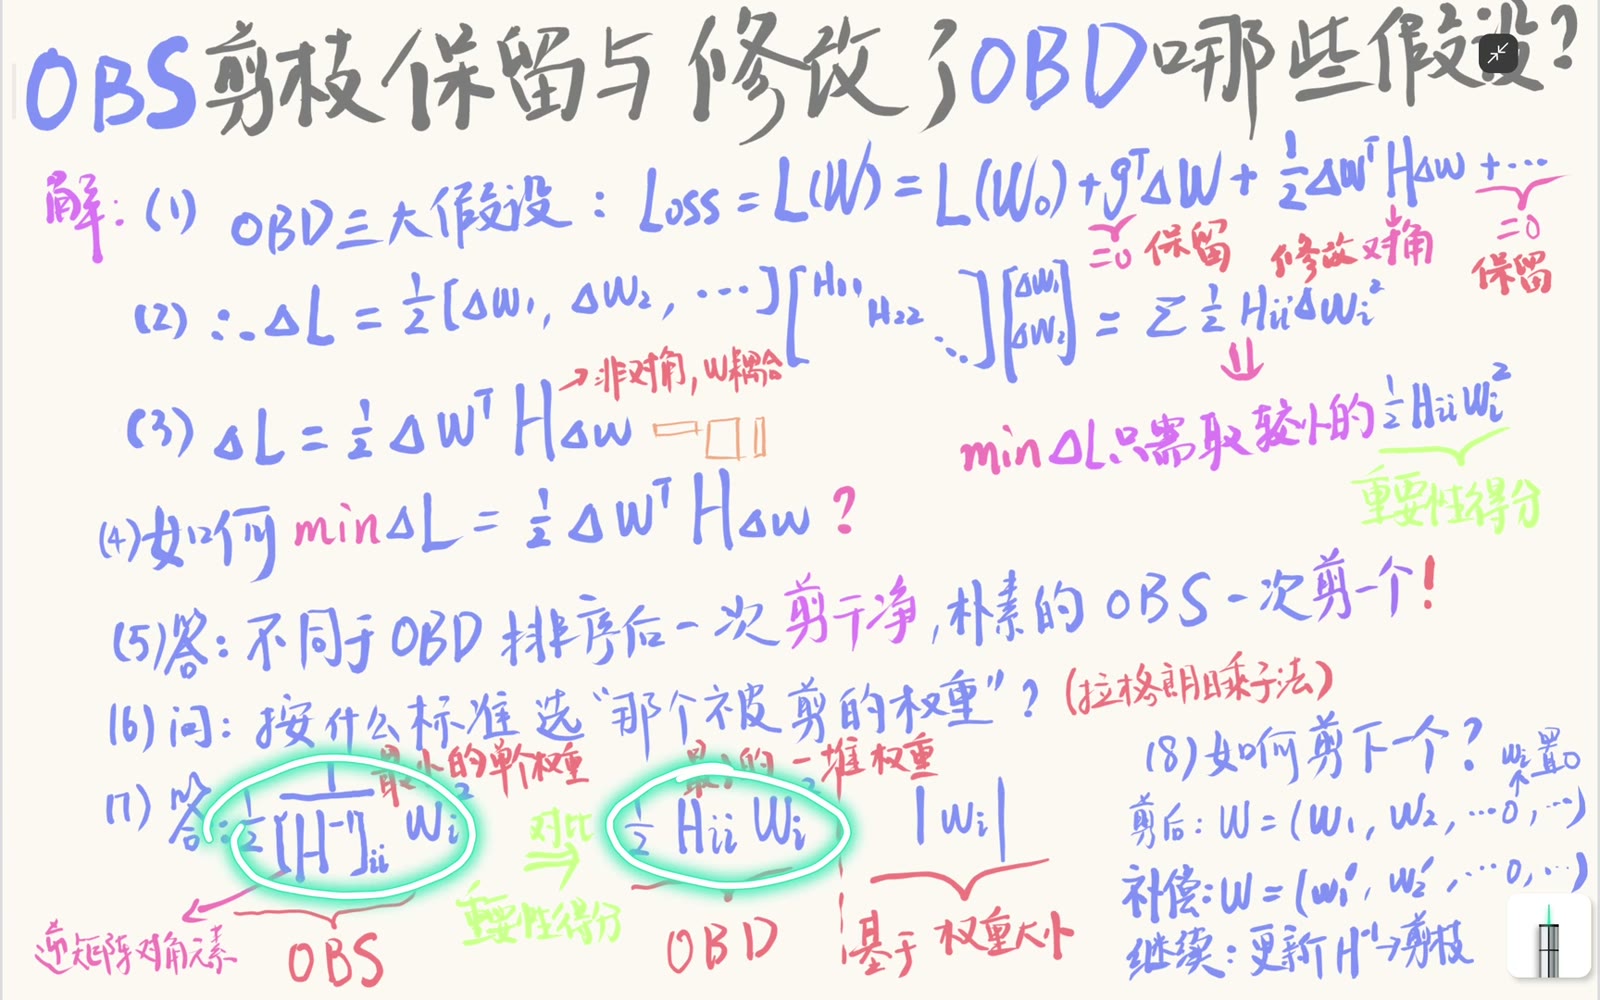 OBS剪枝保留与修改了OBD哪些假设?
解: (1) OBD三大假设: Loss = L(W) = L(W₀) + gᵀΔW + 1/2 ΔWᵀHΔW + ...
=0 保留 修改对角 =0 保留
(2) ∴ΔL = 1/2 [ΔW₁, ΔW₂, ...] [H₁₁ H₂₂ ⋱] [ΔW₁ ΔW₂] = Σ 1/2 Hᵢᵢ ΔWᵢ²
⇓
→非对角, W耦合
(3) ΔL = 1/2 ΔWᵀ H ΔW
minΔL只需取较小的 1/2 Hᵢᵢ Wᵢ²
重要性得分
(4) 如何 min ΔL = 1/2 ΔWᵀ H ΔW ?
(5) 答: 不同于OBD排序后一次剪干净, 朴素的OBS一次剪一个!
(6) 问: 按什么标准选“那个被剪的权重”? (拉格朗日乘子法)
最小的单个权重 的一堆权重
(7) 答: 1/2 1/[H⁻¹]ᵢᵢ Wᵢ² 对比 ⇒ 1/2 Hᵢᵢ Wᵢ² |Wᵢ|
重要性得分
逆矩阵对角元素 OBS OBD 基于权重大小
(8) 如何剪下一个?
Wᵢ置0
剪后: W = (W₁, W₂, ...0, ...)
补偿: W = (W₁′, W₂′, ...0, ...)
继续: 更新H⁻¹→剪枝